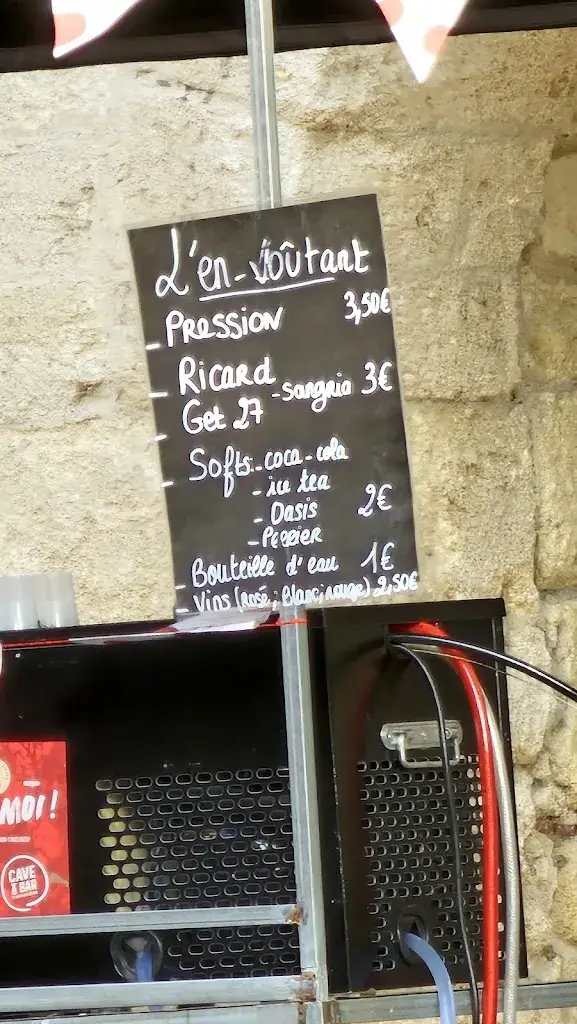 L'en-voûtant
- Pression 3,50€
- Ricard - sangria 3€
- Get 27
- Softs: - coca-cola
- ice tea
- Oasis 2€
- Perrier
- Bouteille d'eau 1€
- Vins (rosé; blanc; rouge) 2,50€
MOI!
CAVE
& BAR